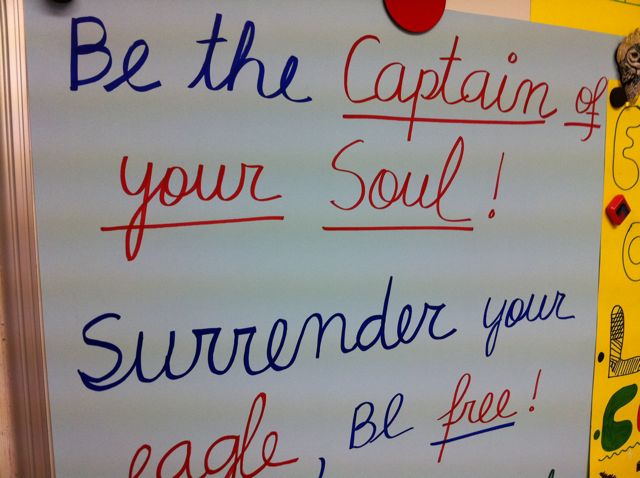 Be the Captain of
your Soul!
Surrender your
eagle, Be free!